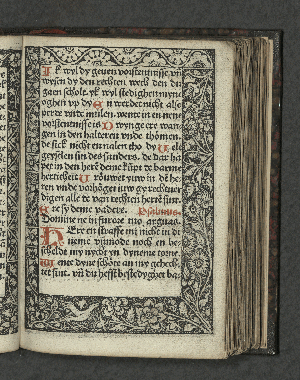 Ik wyl dy geuen vorstentnisse vñ
wysen dy den rechten wech den du
gaen schole. yk wyl stedighen myne
oghen vp dy S in werdet nicht alse
perde vnde mulen. wente in en nen
vorstentnisse is D wynge ere wan
gen in den halteren vnde thomen.
de sick nicht en nalen tho dy U ele
geysselen sin des sunders. de dar ha
pet in den here deme küpt de barme
herticheit U rouwet iuw in de he
ren vnde vorhöget iuw gy rechtuer
digen alle de van rechten herte sint.
E re sy deme vadere. Psalmus.
Domine ne in furore tuo arguas.
HEre en straffe mi nicht in di
neme vnmode noch en be
schelde my nycht yn dyneme torne.
W ente dyne schöte an my gehech
tet sint. vñ du heffst bestedyghet ba